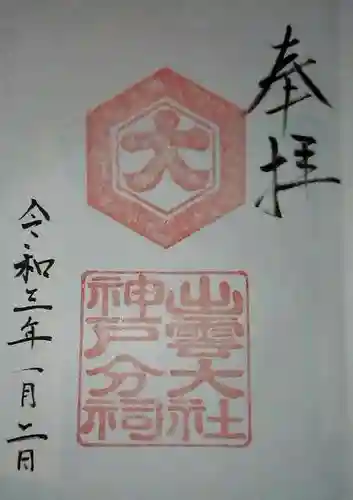 奉拝
大
出雲大社
神戸分祠
令和三年一月二日